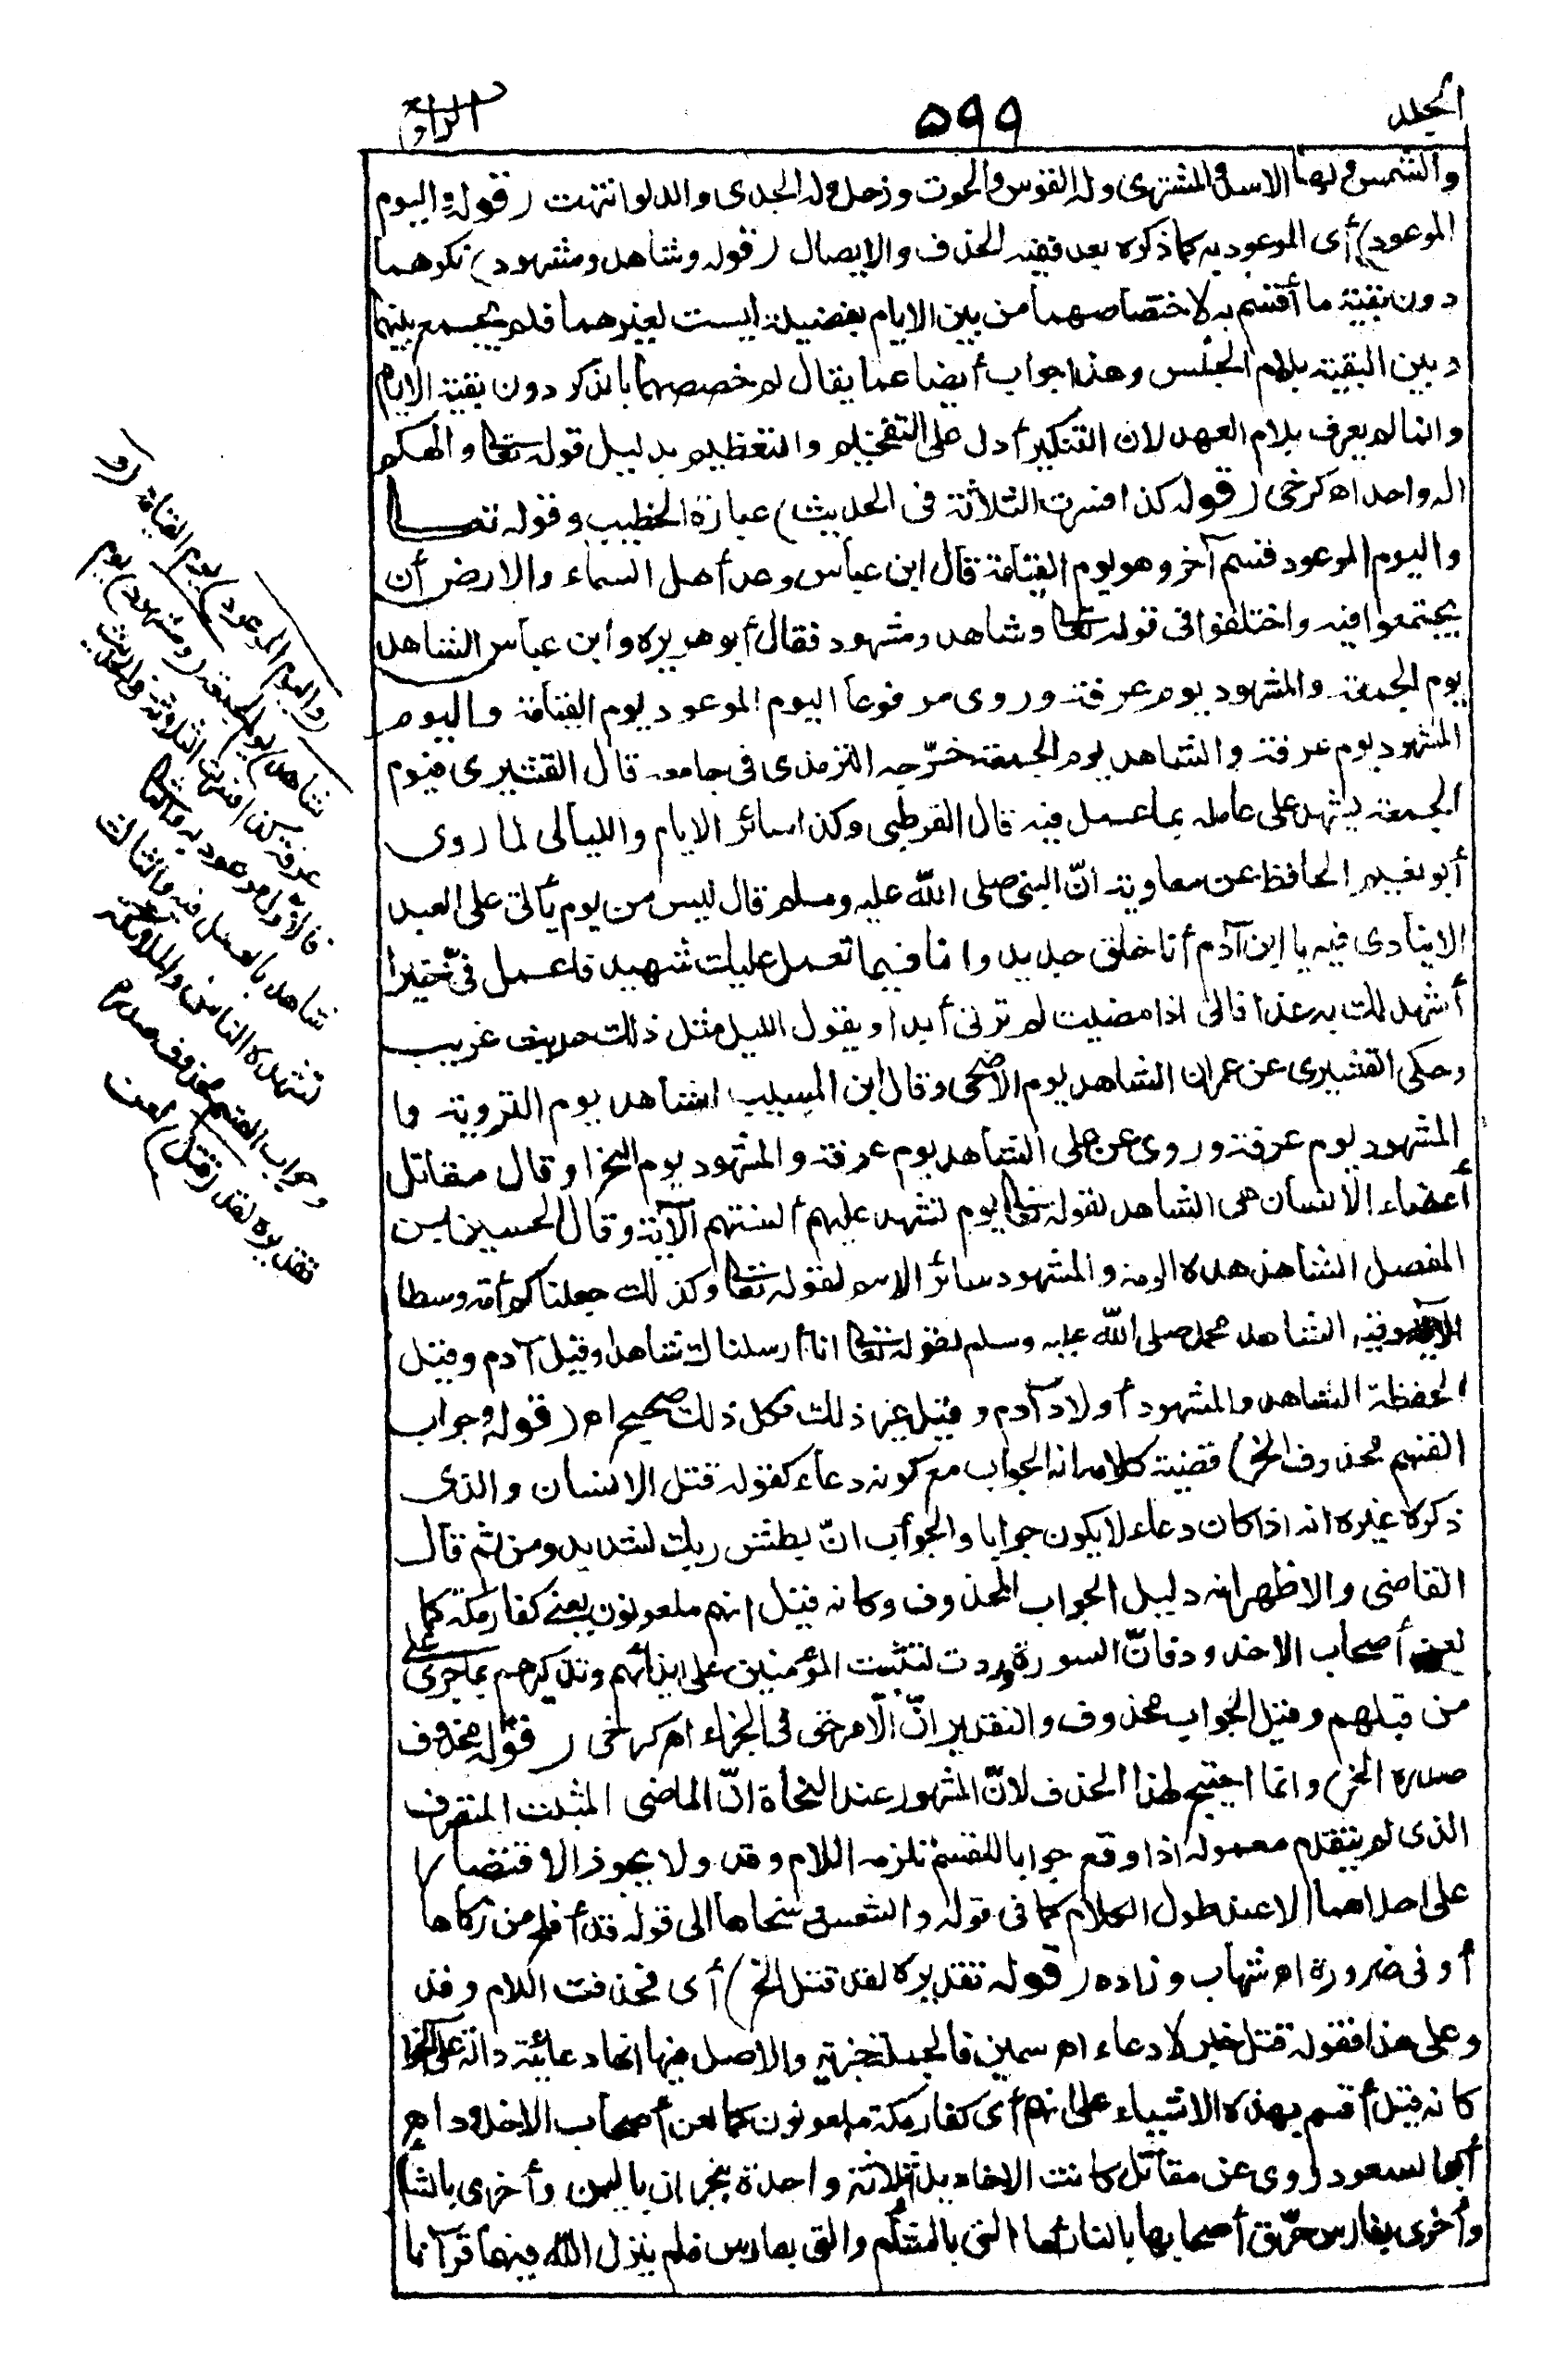 الجلد
٥٩٩
الرابع
والشمس ولها الاسد والمشترى وله القوس والحوت وزحل وله الجدى والدلو انتهت (قوله واليوم
الموعود) أى الموعود به كما ذكره بعد ففيه الحذف والايصال (قوله وشاهد ومشهود) نكرهما
دون بقية ما أقسم به لاختصاصهما من بين الايام بفضيلة ليست لغيرهما فلم يجمع بينهما
وبين البقية بلام الجنس وهذا جواب أيضا عما يقال لم خصصهما بالذكر دون بقية الايام
وانما لم يعرف بلام العهد لان التنكير أدل على التفخيم والتعظيم بدليل قوله تعالى والهكم
اله واحد اه كرخى (قوله كذا فسرت الثلاثة فى الحديث) عبارة الخطيب وقوله تعالى
واليوم الموعود قسم آخر وهو يوم القيامة قال ابن عباس وعد أهل السماء والارض أن
يجتمعوا فيه واختلفوا فى قوله تعالى وشاهد ومشهود فقال أبو هريرة وابن عباس الشاهد
يوم الجمعة والمشهود يوم عرفة وروى مرفوعا اليوم الموعود يوم القيامة واليوم
المشهود يوم عرفة والشاهد يوم الجمعة خرّجه الترمذى فى جامعه قال القشيرى فيوم
الجمعة يشهد على عامله بما عمل فيه قال القرطبى وكذا سائر الايام والليالى لما روى
أبو نعيم الحافظ عن معاوية انّ النبى صلى الله عليه وسلم قال ليس من يوم يأتى على العبد
الا ينادى فيه يا ابن آدم أنا خلق جديد وانا فيما تعمل عليك شهيد فاعمل فىّ خيرا
أشهد لك به غدا فانى اذا مضيت لم ترنى أبدا ويقول الليل مثل ذلك حديث غريب
وحكى القشيرى عن عمران الشاهد يوم الأضحى وقال ابن المسيب الشاهد يوم التروية و
المشهود يوم عرفة وروى عن على الشاهد يوم عرفة والمشهود يوم النحر وقال مقاتل
أعضاء الانسان هى الشاهد لقوله تعالى يوم تشهد عليهم ألسنتهم الآية وقال الحسين بن
المفصل الشاهد هذه الامة والمشهود سائر الامم لقوله تعالى وكذلك جعلناكم أمة وسطا
الآية وقيل الشاهد محمد صلى الله عليه وسلم لقوله تعالى انا أرسلناك شاهدا وقيل آدم وقيل
الحفظة الشاهد والمشهود أولاد آدم وقيل غير ذلك وكل ذلك صحيح اه (قوله وجواب
القسم محذوف الخ) قضية كلامه انه الجواب مع كونه دعاء كقوله قتل الانسان والذى
ذكره غيره انه اذا كان دعاء لا يكون جوابا والجواب انّ بطش ربك لشديد ومن ثم قال
القاضى والاظهر انه دليل الجواب المحذوف وكانه قيل انهم ملعونون يعنى كفار مكة كما
لعن أصحاب الاخدود فانّ السورة وردت لتثبيت المؤمنين على ايذائهم وتذكيرهم بما جرى على
من قبلهم وقيل الجواب محذوف والتقدير انّ الأمر حق فى الجزاء اه كرخى (قوله محذوف
صدره الخ) وانما احتيج لهذا الحذف لانّ المشهور عند النحاة انّ الماضى المثبت المتصرف
الذى لم يتقدم معموله اذا وقع جوابا للقسم تلزمه اللام وقد ولا يجوز الاقتصار
على احداهما الا عند طول الكلام كما فى قوله والشمس وضحاها الى قوله قد أفلح من زكاها
أو فى ضرورة اه شهاب وزاده (قوله تقديره لقد قتل الخ) أى فحذفت اللام وقد
وعلى هذا فقوله قتل خبر لا دعاء اه سمين فالجملة خبرية والاصل فيها انها دعائية دالة على الجواب
كانه قيل أقسم بهذه الاشياء على انهم أى كفار مكة ملعونون كما لعن أصحاب الاخدود اه
أبو السعود روى عن مقاتل كانت الاخاديد ثلاثة واحدة بنجران باليمن وأخرى بالشام
وأخرى بفارس حرّق أصحابها بالنار أما التى بالشام والتى بفارس فلم ينزل الله فيهما قرآنا
(واليوم الموعود) يوم القيامة (و
شاهد) يوم الجمعة (ومشهود) يوم
عرفة كذا فسرت الثلاثة فى الحديث
فالأول موعود به والثانى
شاهد بالعمل فيه والثالث
تشهده الناس والملائكة
وجواب القسم محذوف صدره
تقديره لقد (قتل) لعن